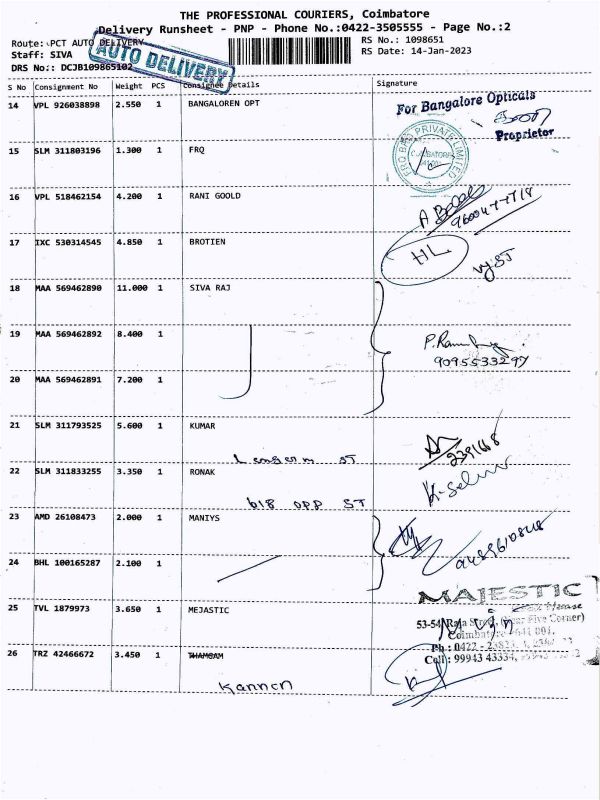 THE PROFESSIONAL COURIERS, Coimbatore
Delivery Runsheet - PNP - Phone No.:0422-3505555 - Page No.:2
Route: PCT AUTO DELIVERY RS No.: 1098651
Staff: SIVA RS Date: 14-Jan-2023
DRS No:: DCJB109865102
AUTO DELIVERY
S No Consignment No Weight PCS Consignee Details Signature
14 VPL 926038898 2.550 1 BANGALOREN OPT
For Bangalore Opticals
Proprietor
15 SLM 311803196 1.300 1 FRQ
16 VPL 518462154 4.200 1 RANI GOOLD
9600477718
17 IXC 530314545 4.850 1 BROTIEN
HL
18 MAA 569462890 11.000 1 SIVA RAJ
19 MAA 569462892 8.400 1
9095533297
20 MAA 569462891 7.200 1
21 SLM 311793525 5.600 1 KUMAR
ST
22 SLM 311833255 3.350 1 RONAK
opp ST
23 AMD 26108473 2.000 1 MANIYS
24 BHL 100165287 2.100 1
MAJESTIC
25 TVL 1879973 3.650 1 MEJASTIC
53-54, Raja Street, (Near Five Corner)
Coimbatore - 641 001.
26 TRZ 42466672 3.450 1 THAMSAM
Cell : 99943 43334,
Kannan